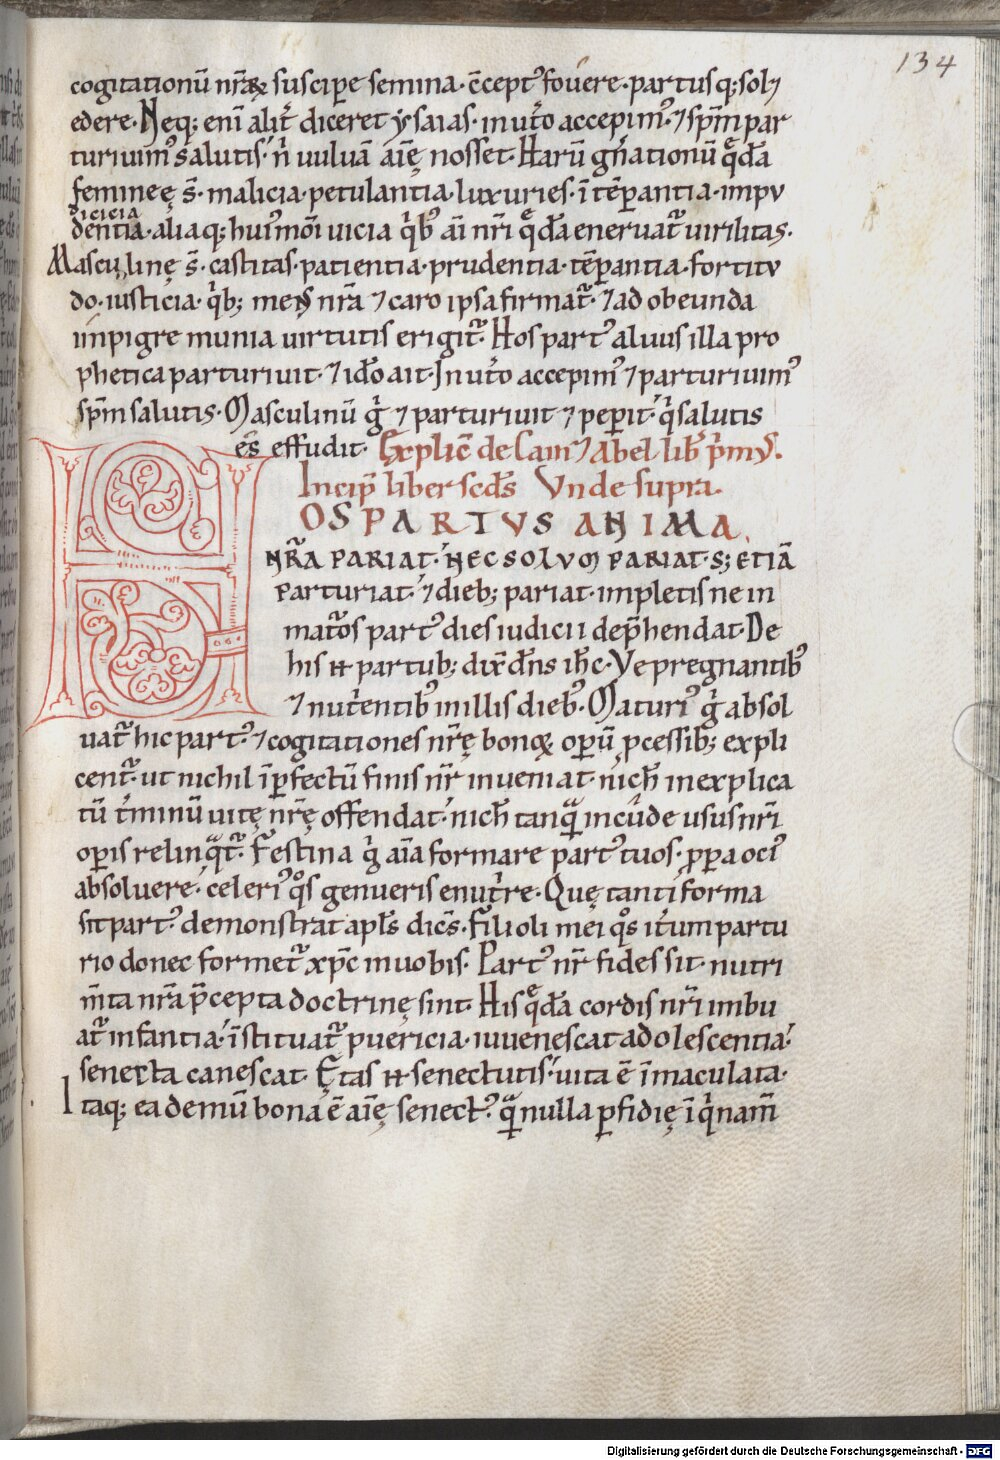 134
cogitationū nr̄aꝝ suscipe semina. c̄cept᾽ fouere. partusq; soluͥ
edere. Neq; enī alit̄ diceret ysaias. in ut̄o accepim᾽. ⁊ sp̄m par
turiuim᾽ salutis. n̄ uuluā aīę nosset. Harū gn̄ationū quędā
femineę s̄. malicia. petulantia. luxuries. ītēꝑantia. impu
dicicia
dentia. aliaq; hui᾽modi uicia qͥb᾽ aī nr̄i quędā eneruat᷑ uirilitas.
Masculinę s̄. castitas. patientia. prudentia. tēꝑantia. fortitu
do. iusticia. qͥb; mens nr̄a ⁊ caro ipsa firmat᷑. ⁊ ad obeunda
impigre munia uirtutis erigit᷑. Hos part᾽ aluus illa pro
phetica parturiuit. ⁊ idō ait. In ut̄o accepim᾽ ⁊ parturiuim᾽
sp̄m salutis. Masculinū gͥ ⁊ parturiuit ⁊ peperit. qͥ salutis
ēs effudit. Explic̄ de Cain ⁊ Abel lib̄ p̄m᾽.
Incip̄ liber scd̄s Vnde supra.
HOS PARTVS ANIMA
NR̄A PARIAT. NEC SOLVM PARIAT. S; ETIĀ
parturiat. ⁊ dieb; pariat. impletis ne in
mat̄os part᾽ dies iudicii dep̄hendat. De
his ⁊ partub; dix̄ dn̄s ih̄c. Ve pregnantib᾽
⁊ nut̄entib᾽ in illis dieb᾽. Maturi᾽ gͥ absol
uat᷑ hic part᾽. ⁊ cogitationes nr̄ę bonoꝝ operū ꝓcessib; expli
cent᷑. ut nichil īꝑfectū finis nr̄ inueniat. nich̄ inexplica
tū t̄minū uitę nr̄ę offendat. nich̄ tanqͣ in cude usus nr̄i
operis relinqͣt᷑. Festina gͥ aīa formare part᾽ tuos. ꝓpera oci᾽
absoluere. celeri᾽ qͦs genueris enut̄re. Quę tanti forma
sit part᾽ demonstrat apl̄s dicēs. Filioli mei qͦs it̄um partu
rio donec formet᷑ xp̄c in uobis. Part᾽ nr̄ fides sit. nutri
m̄ta nr̄a p̄cepta doctrinę sint. His quędā cordis nr̄i imbu
at᷑ infantia. īstituat᷑ puericia. iuuenescat adolescentia.
senecta canescat. Ętas ⁊ senectutis. uita ē īmaculata.
Itaq; ea demū bona ē aīę senect᾽. qͣ nulla ꝑfidię īqͥnam̄
Digitalisierung gefördert durch die Deutsche Forschungsgemeinschaft - DFG